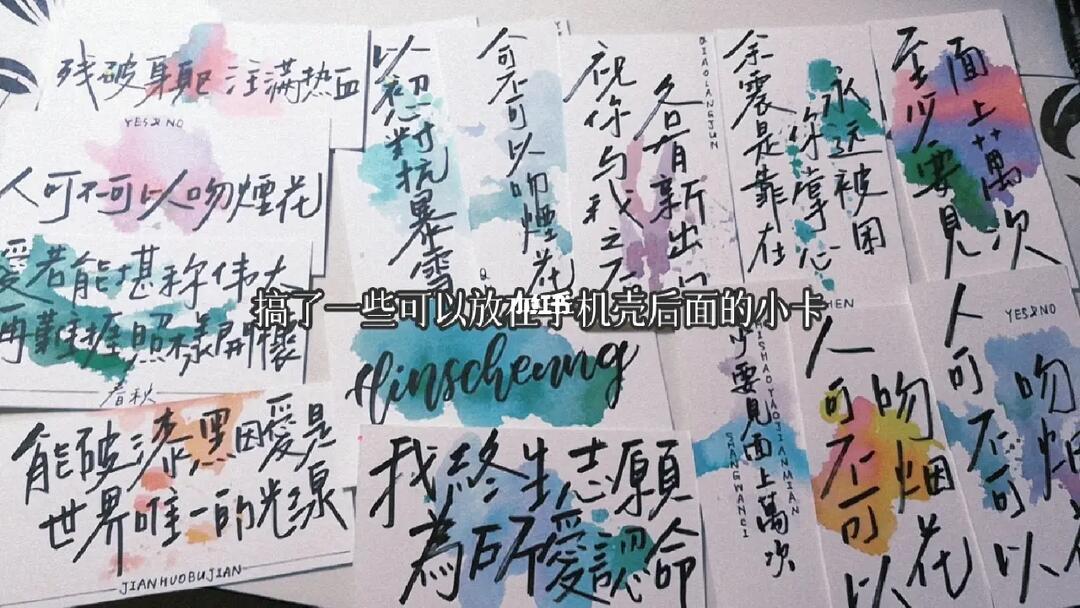 残破身躯 注满热血
YES&NO
人可不可以人吻煙花
愛若能堪称伟大
再難捱照樣開懷
春秋
能破漆黑因愛是
世界唯一的光源
JIANHUOBUJIAN
以初心對抗暴雪
可不可以吻煙花
祝你与我之后
各有新出口
QIAOLANGJUN
余震是靠在
你掌心
永远被困
至少要見
面上萬次
搞了一些可以放在手机壳后面的小卡
小红书
Hinscheung
我終生志願
為所愛認命
少要見面上萬次
ZHISHAOYAOJIANMIAN
SHANGWANCI
HEN
人可不可以
吻烟花
YES&NO
人可不可以
吻烟